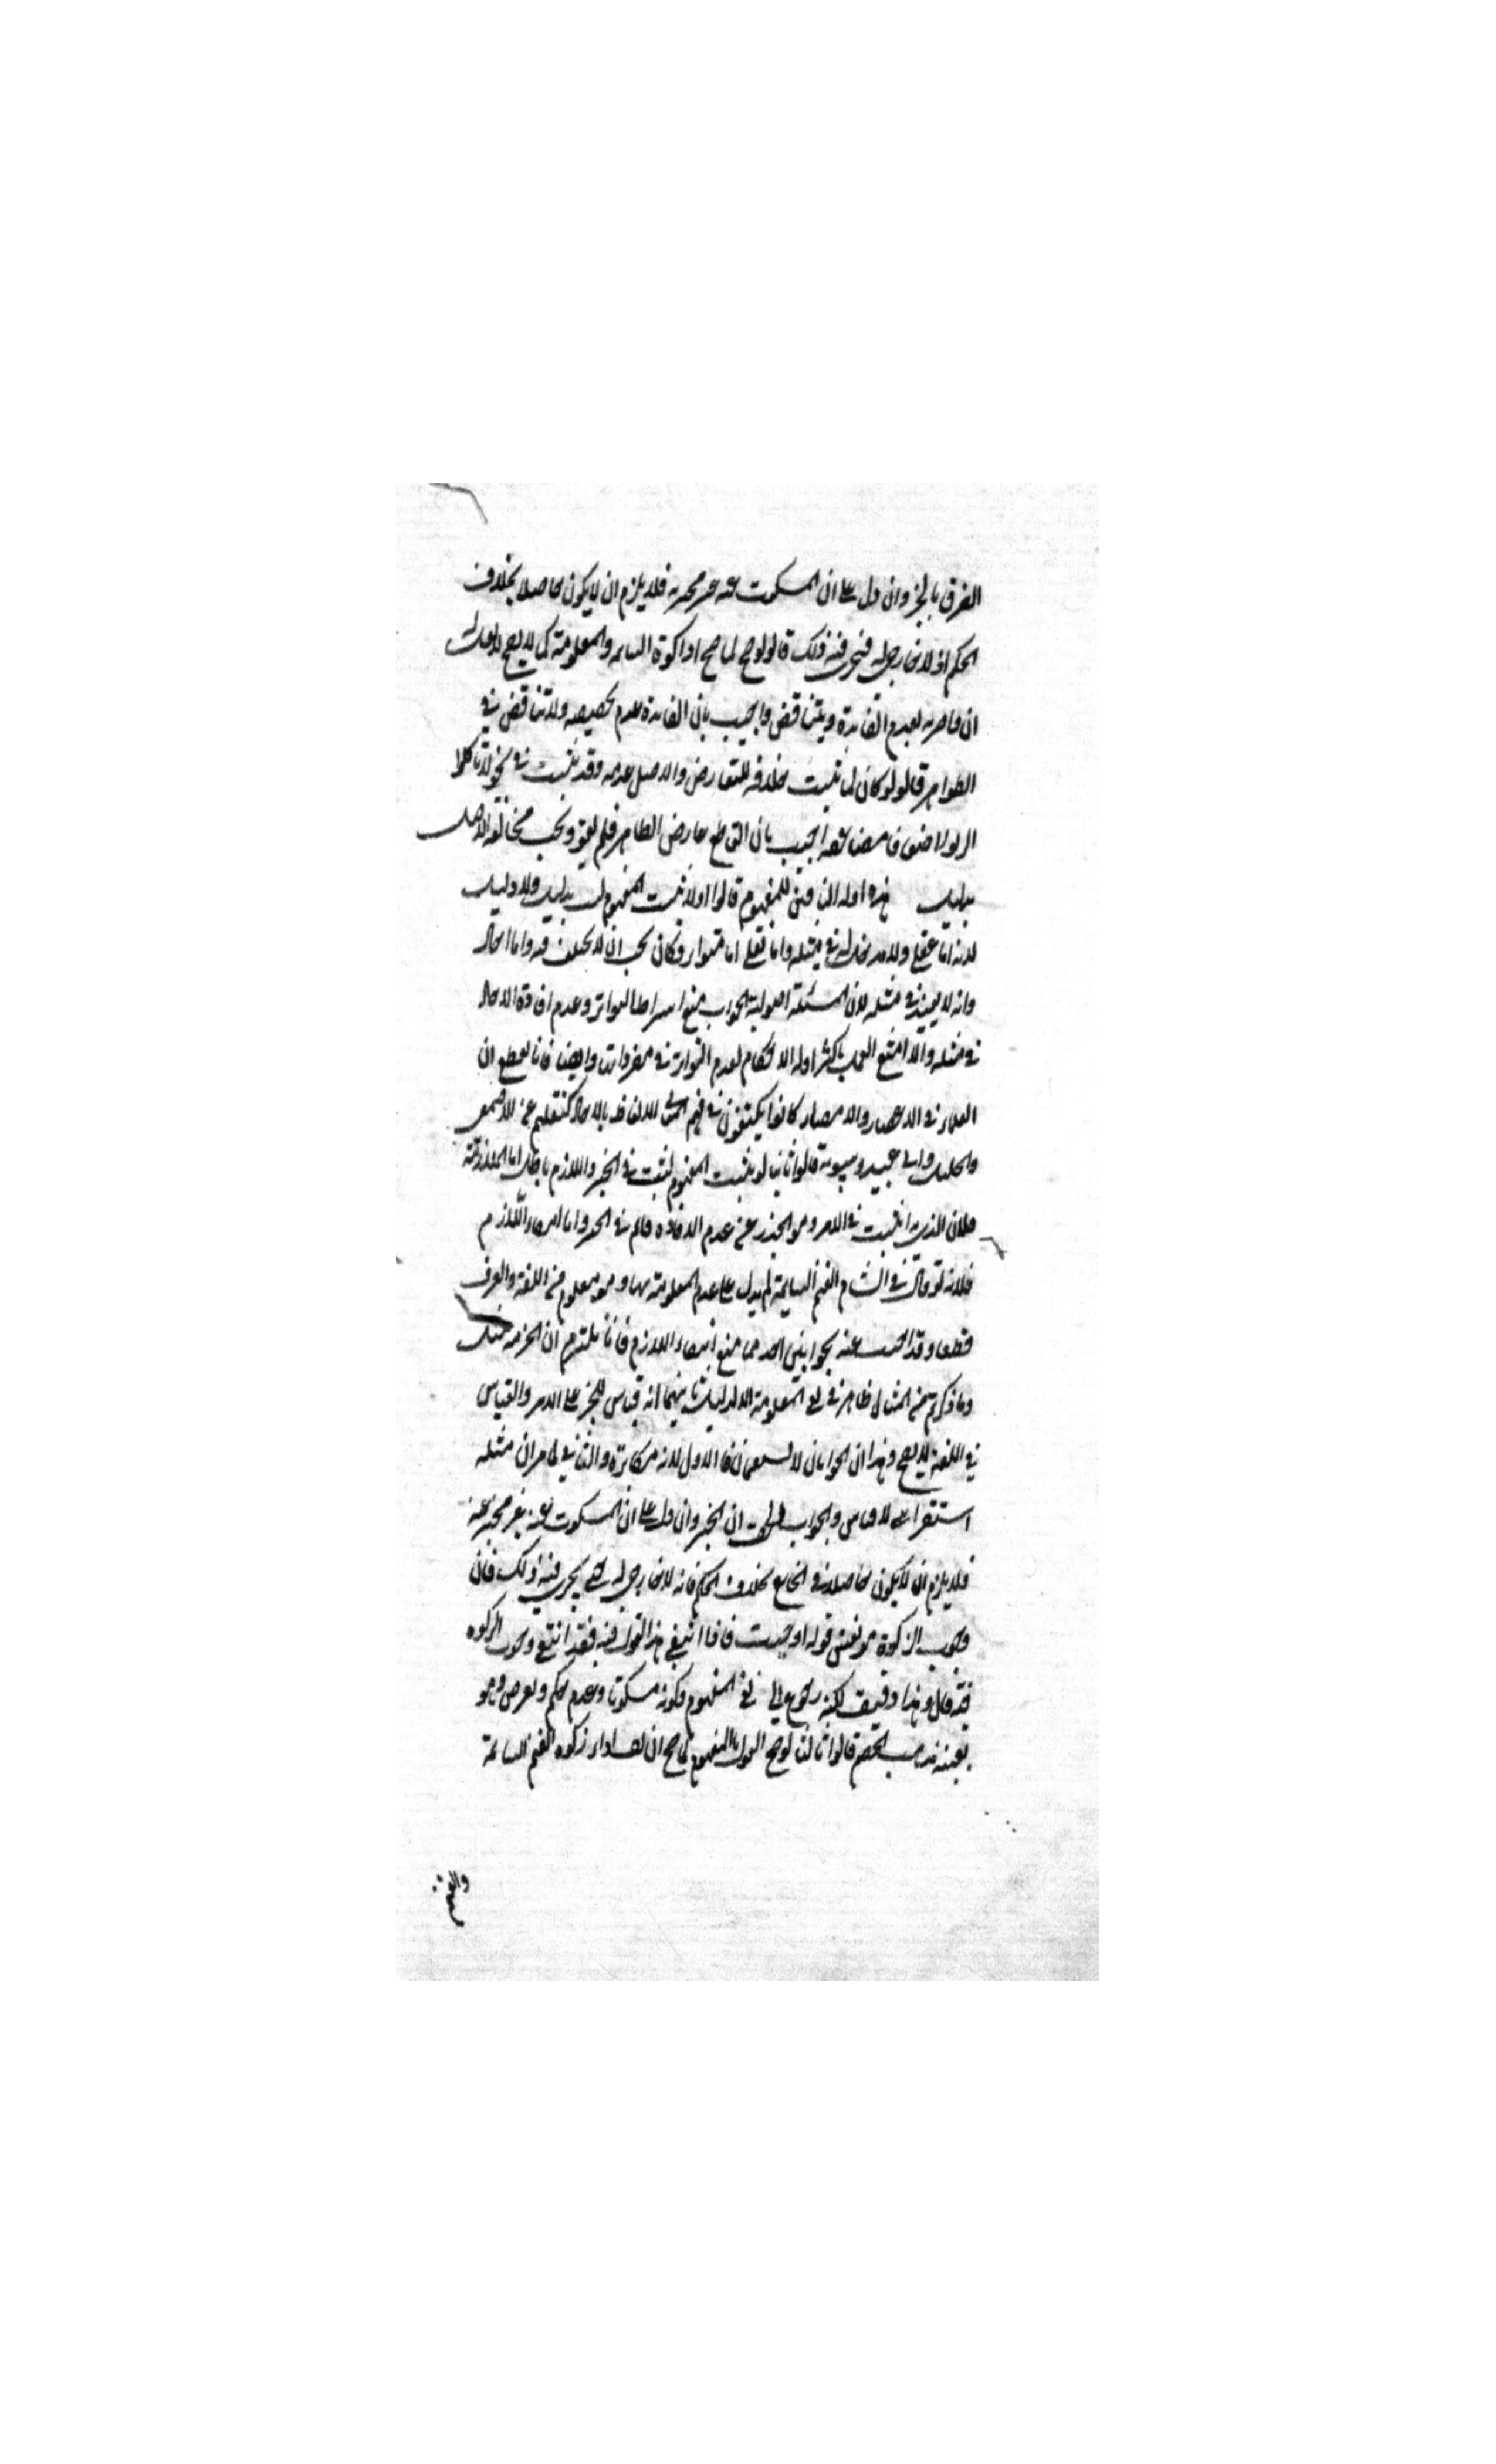 الفرق بالخبر وان دل على ان المسكوت عنه غير مخبر به فلا يلزم ان لا يكون حاصلا بخلاف
الحكم اذ لا خارجي له فيجري فيه ذلك قالوا لو صح لما صح اد زكوة السائمه والمعلوفة كما لا يصح
لعدم الفائدة ويتناقض واجيب بان الفائدة عدم تخصيصه ولا تناقض في
الظواهر قالوا لو كان لما ثبت خلافه للتعارض والاصل عدمه وقد ثبت في نحو لا تاكلوا
الربوا اضعافا مضاعفه اجيب بان القاطع عارض الظاهر فلم يقو ويجب مخالفة الاصل
بدليل هذه ادلة النافين للمفهوم قالوا اولا لو ثبت المفهوم لثبت بدليل ولا دليل
لانه اما عقلي ولا مدخل له في مثله واما نقلي اما متواتر وكان يجب ان لا يختلف فيه واما احاد
وانه لا يفيد في مثله لان المسئلة اصولية الجواب منع اشتراط التواتر وعدم افادة الاحاد
في مثله والا امتنع العمل باكثر ادلة الاحكام لعدم التواتر في مفرداتها وايضا فانا نقطع ان
العلماء في الاعصار والامصار كانوا يكتفون في فهم معاني الالفاظ بالاحاد كنقلهم عن الاصمعي
والخليل وابي عبيد وسيبويه قالوا ثانيا لو ثبت المفهوم لثبت في الخبر واللازم باطل اما الملازمة
فلان الذي به اثبت في الامر وهو الحذر عن عدم الافاده قائم في الخبر واما انتفاء اللازم
فلانه لو قال في الشام الغنم السايمة لم يدل على عدم المعلوفة بها وهو معلوم من اللغة والعرف
قطعا وقد اجيب عنه بجوابين احدهما منع انتفاء اللازم فانا نلتزم ان الخبر مثله
وما ذكرتم من المثال ظاهر في نفي المعلوفة الا لدليل ثانيهما انه قياس للخبر على الامر والقياس
في اللغة لا يصح وهذان الجوابان لا يستقيمان فالاول لانه مكابرة والثاني لما مر ان مثله
استقرائي لا قياس والجواب الحق ان الخبر وان دل على ان المسكوت عنه غير مخبر عنه
فلا يلزم ان لا يكون حاصلا في الخارج بخلاف الحكم فانه لا خارجي له حتى يجري فيه ذلك فان
وجوب الزكوة هو نفس قوله اوجبت فاذا انتفى هذا القول فيه فقد انتفى وجوب الزكوة
فيه قال وهذا دقيق لكنه رجوع الى نفي المفهوم وكونه مسكوتا وعدم حكم وتعرض وهو
بعينه مذهب الخصم قالوا ثالثا لو صح القول بالمفهوم لما صح ان اداء زكوة الغنم السائمة